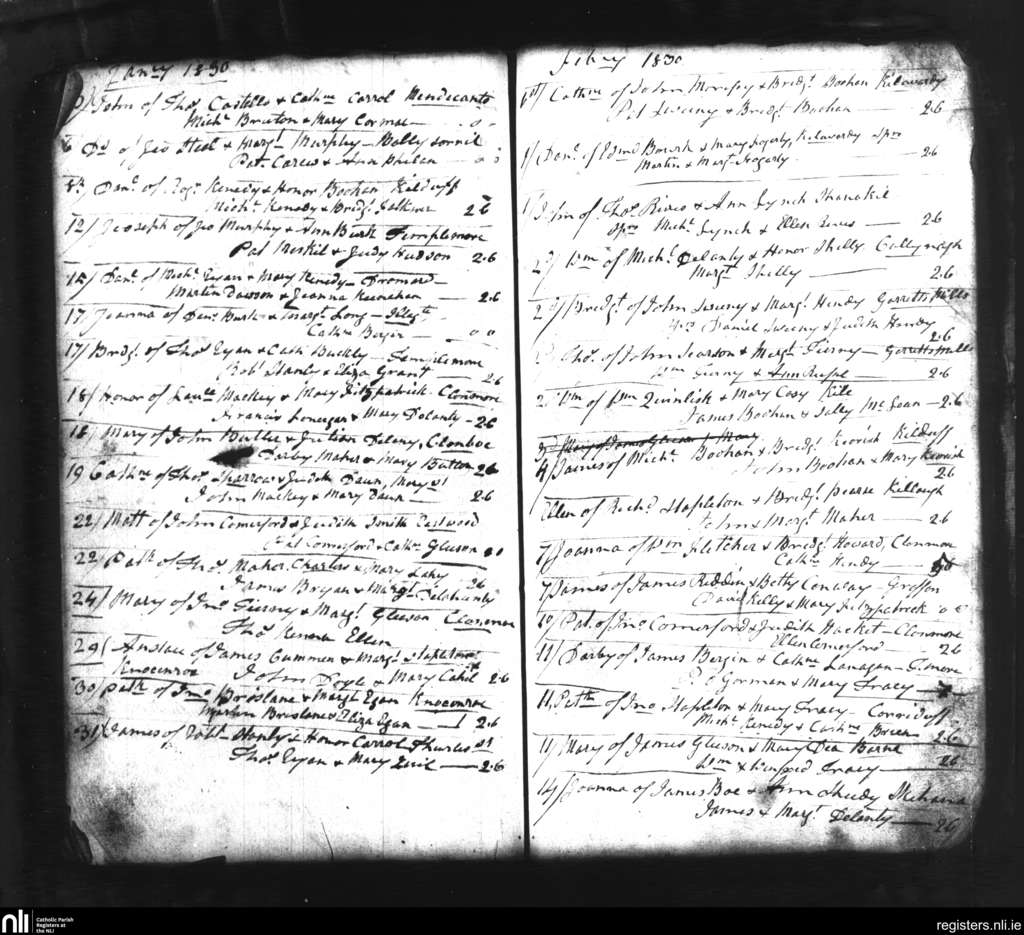 Jany 1830
John of Thos Castello & Cathne Carrol Mendicants
Michl Bruton & Mary Cormac — 0 0
6 Dl of Geo Steel & Margt Murphy —
Pat Carew & Ann Philan — 0 0
8th/ Danl of Rogr Kenedy & Honor Bohan Kilduff
Michl Kenedy & Bridgt 2 6
12/ Joseph of Jno Murphy & Ann Burk Templemore
Pat & Judy Hudson 2.6
15/ Danl of Michl Egan & Mary Kenedy — Dromard —
Martin Dawson & Joanna — 2.6
17/ Joanna of Danl Burk & Margt Long —
Cathne Bergin — 0 0
17/ Bridgt of Thos Egan & Cath Buckly — Templemore
Robt Stanly & Eliza Grant — 2.6
18/ Honor of Mackey & Mary Fitzpatrick Clonmore
Francis Lonergan & Mary Delanty — 2.6
18/ Mary of John Butler & Julian Delany,
Darby Maher & Mary Butler 2.6
19 Cathne of Thos Sparrow & Judith Daun, Mary St
John Mackey & Mary Daun — 2.6
22/ Matt of John Comerford & Judith Smith Eastwood
Pat Comerford & Cathne Gleeson
22/ Patk of Thos Maher, Charters & Mary Lahy
James Bryan & Margt Delahunty 2.6
24/ Mary of Jno Tierney & Margt Gleeson Clonmore
Thos Kenna Ellen
29/ Anstace of James Cummen & Margt Stapleton
Knocanroe John Doyle & Mary Cahil 2.6
30/ Patk of Jno Brislane & Margt Egan Knocanroe
Martin Brislane & Eliza Egan — 2.6
31/ James of Robt Stanly & Honor Carrol Thurles St
Thos Egan & Mary — 2.6
Febry 1830
1st/ Cathne of John Morrissy & Bridgt Bohan Kilavardy
Pat Sweeny & Bridgt Bohan — 2.6
1/ Danl of Edmd Bourk & Mary Hogerty, Kilavardy Spors
Martin & Margt Hogarty — 2.6
1/ John of Thos Rives & Ann Lynch Shanakil
Spors Michl Lynch & Ellen Rives — 2.6
2/ Wm of Michl Delanty & Honor Shelly
Margt Shelly — 2.6
2/ Bridgt of John Sweeny & Margt Hendy Garretts Mills
Daniel Sweeny & Judith Hendy 2.6
Thos of John Pearson & Margt Tierny — Garretts Mills
Wm Tierny & — 2.6
2/ Wm of Wm Quinlisk & Mary Cosy Kile
James Bohan & Sally McLean — 2.6
3d Mary of James Gleeson & Mary
4/ James of Michl Bohan & Bridgt Keerish Kilduff
John Bohan & Mary Keerish 2.6
Ellen of Richd Stapleton & Bridgt Pearse Killough
John & Margt Maher — 2.6
7/ Joanna of Wm Fletcher & Bridgt Howard, Clonmore
Cathne Hendy —
7/ James of James Reddin & Betty Conway —
David Kelly & Mary Fitzpatrick 0 0
10/ Pat of Jno Comerford & Judith Hacket — Clonmore
Ellen Comerford 2.6
11/ Darby of James Bergin & Cathne Lanagan — T.more
Pat Gorman & Mary Tracy —
11 Patk of Jno Stapleton & Mary Tracy —
Michl Kenedy & Cathne Breen 2.6
11/ Mary of James Gleeson & Mary Dea Barne
Wm & Winfred Tracy — 2.6
14/ Joanna of James Boe & Ann Sheedy
James & Margt Delanty — 2.6
nli
Catholic Parish
Registers at
the NLI
registers.nli.ie